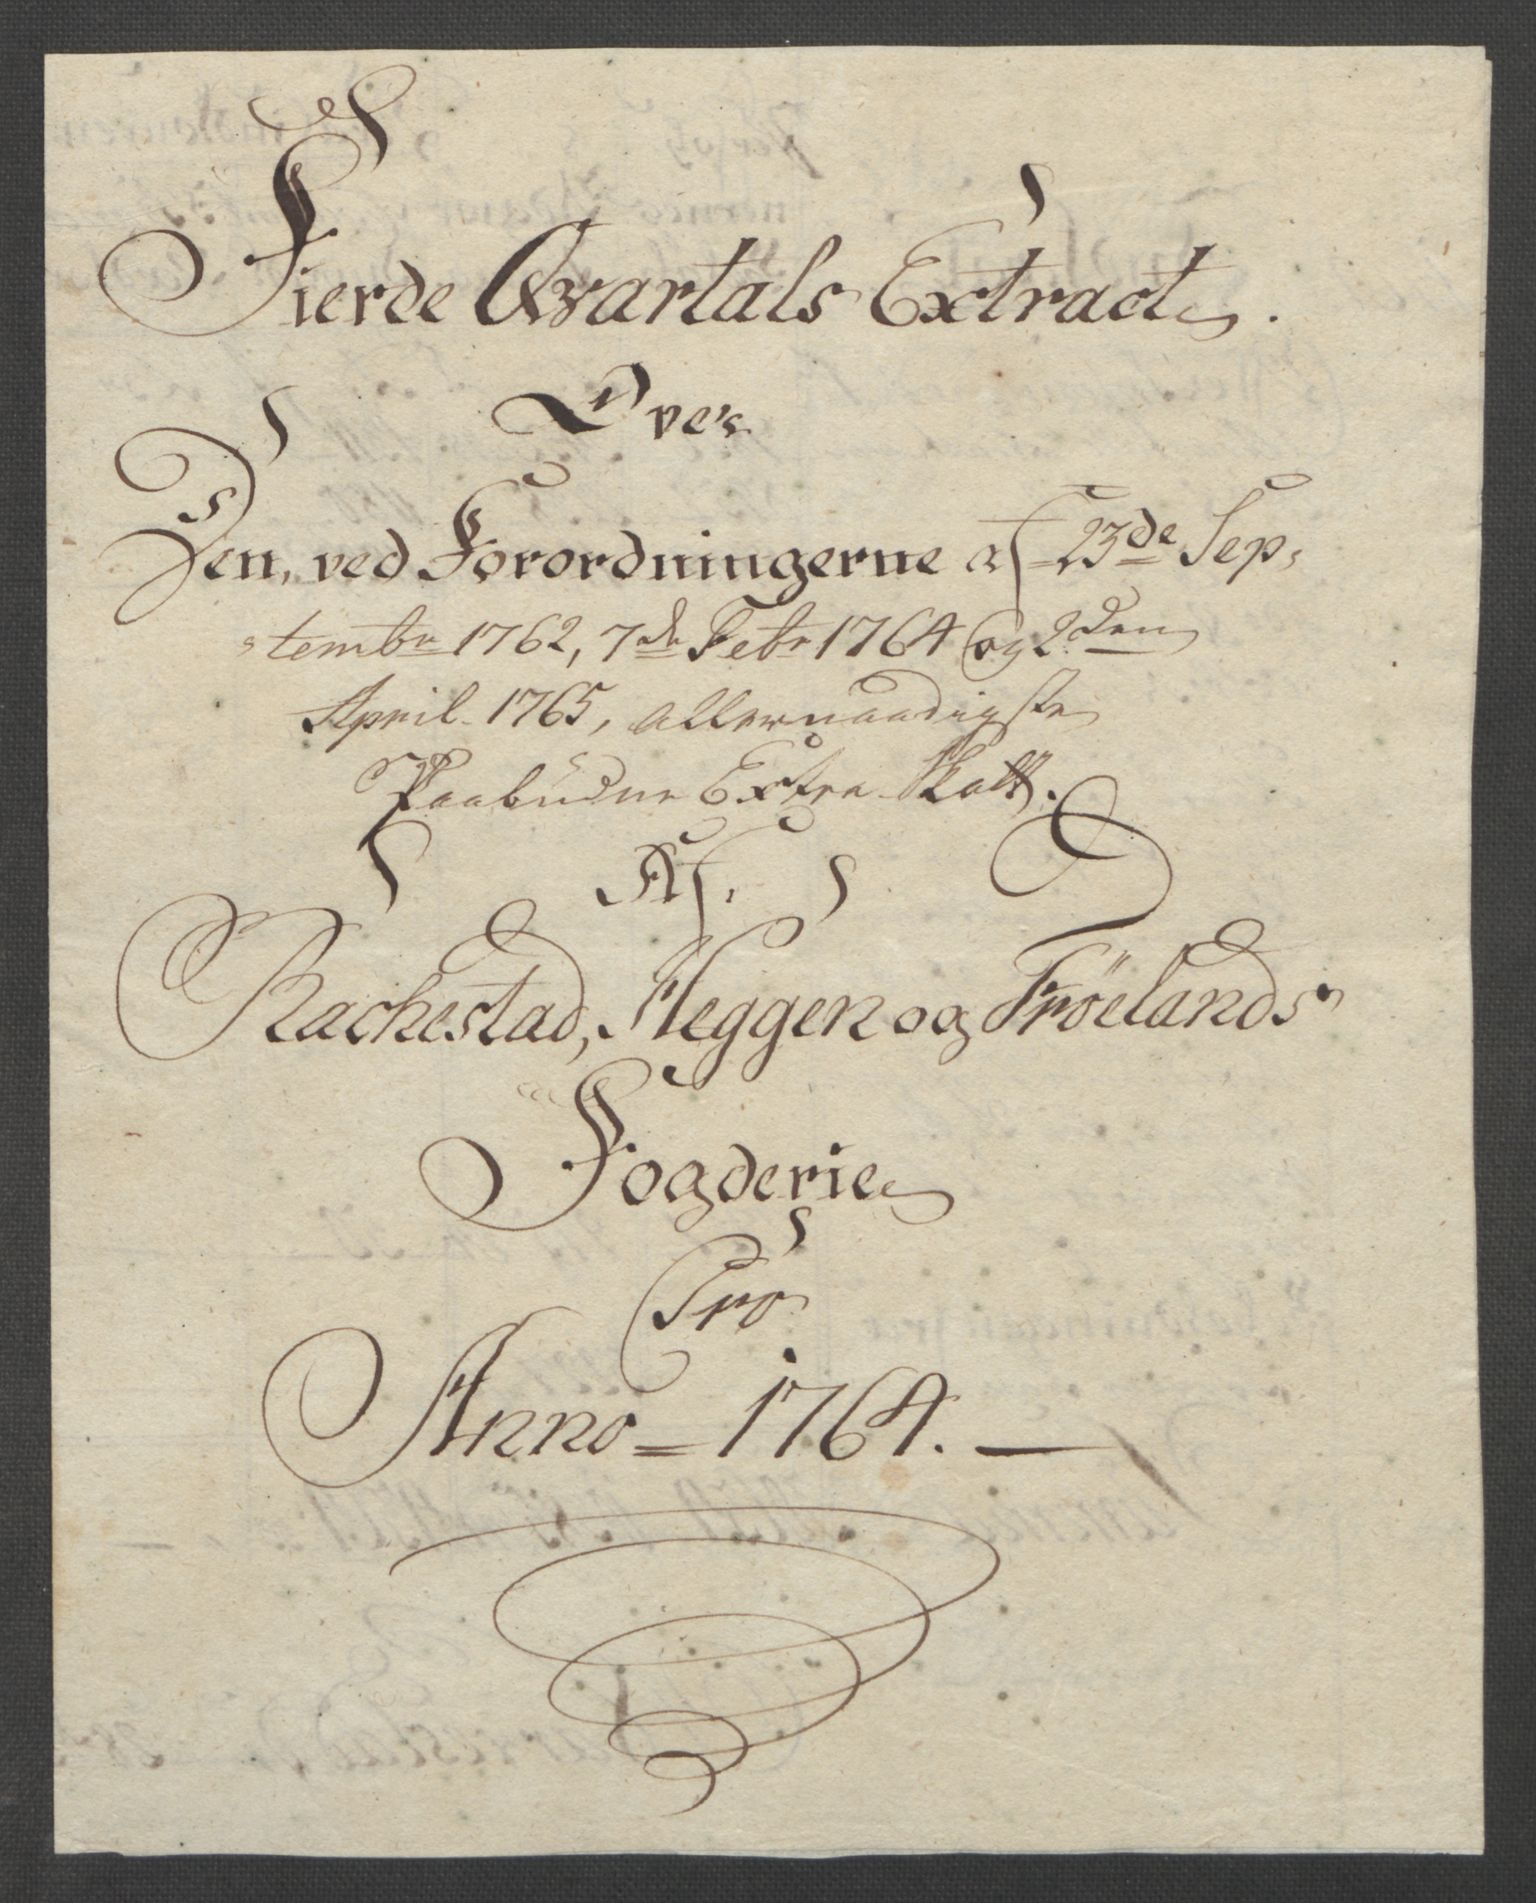 Fierde Qvartals Extract.
Over
Den, ved Forordningerne af 23de Sep,
tembr 1762, 7de Febr 1764 og 2den
April 1765, allernaadigste
Paabudne Extra Skatt.
Af.
Rachestad, Heggen og Fröelands
Fogderie
Pro
Anno = 1764. —